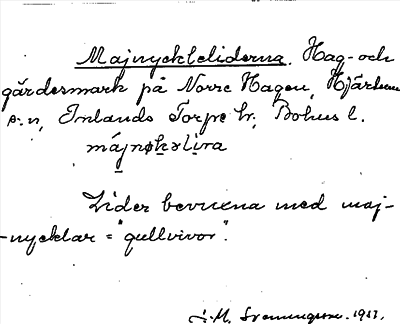 Majnyckleliderna. Hag- och
gärdesmark på Norre Hagen, Hjärtum
s:n, Inlands Torpe hr, Bohus l.
májnøkəlira
Lider bevuxna med maj-
-nycklar = "gullvivor".
J.M. Svenungsson. 1933.